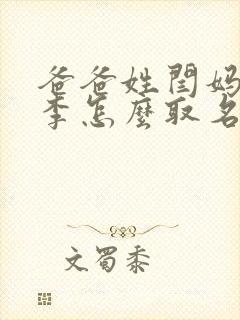 爸爸姓閆妈
李怎麼取名
文蜀黍